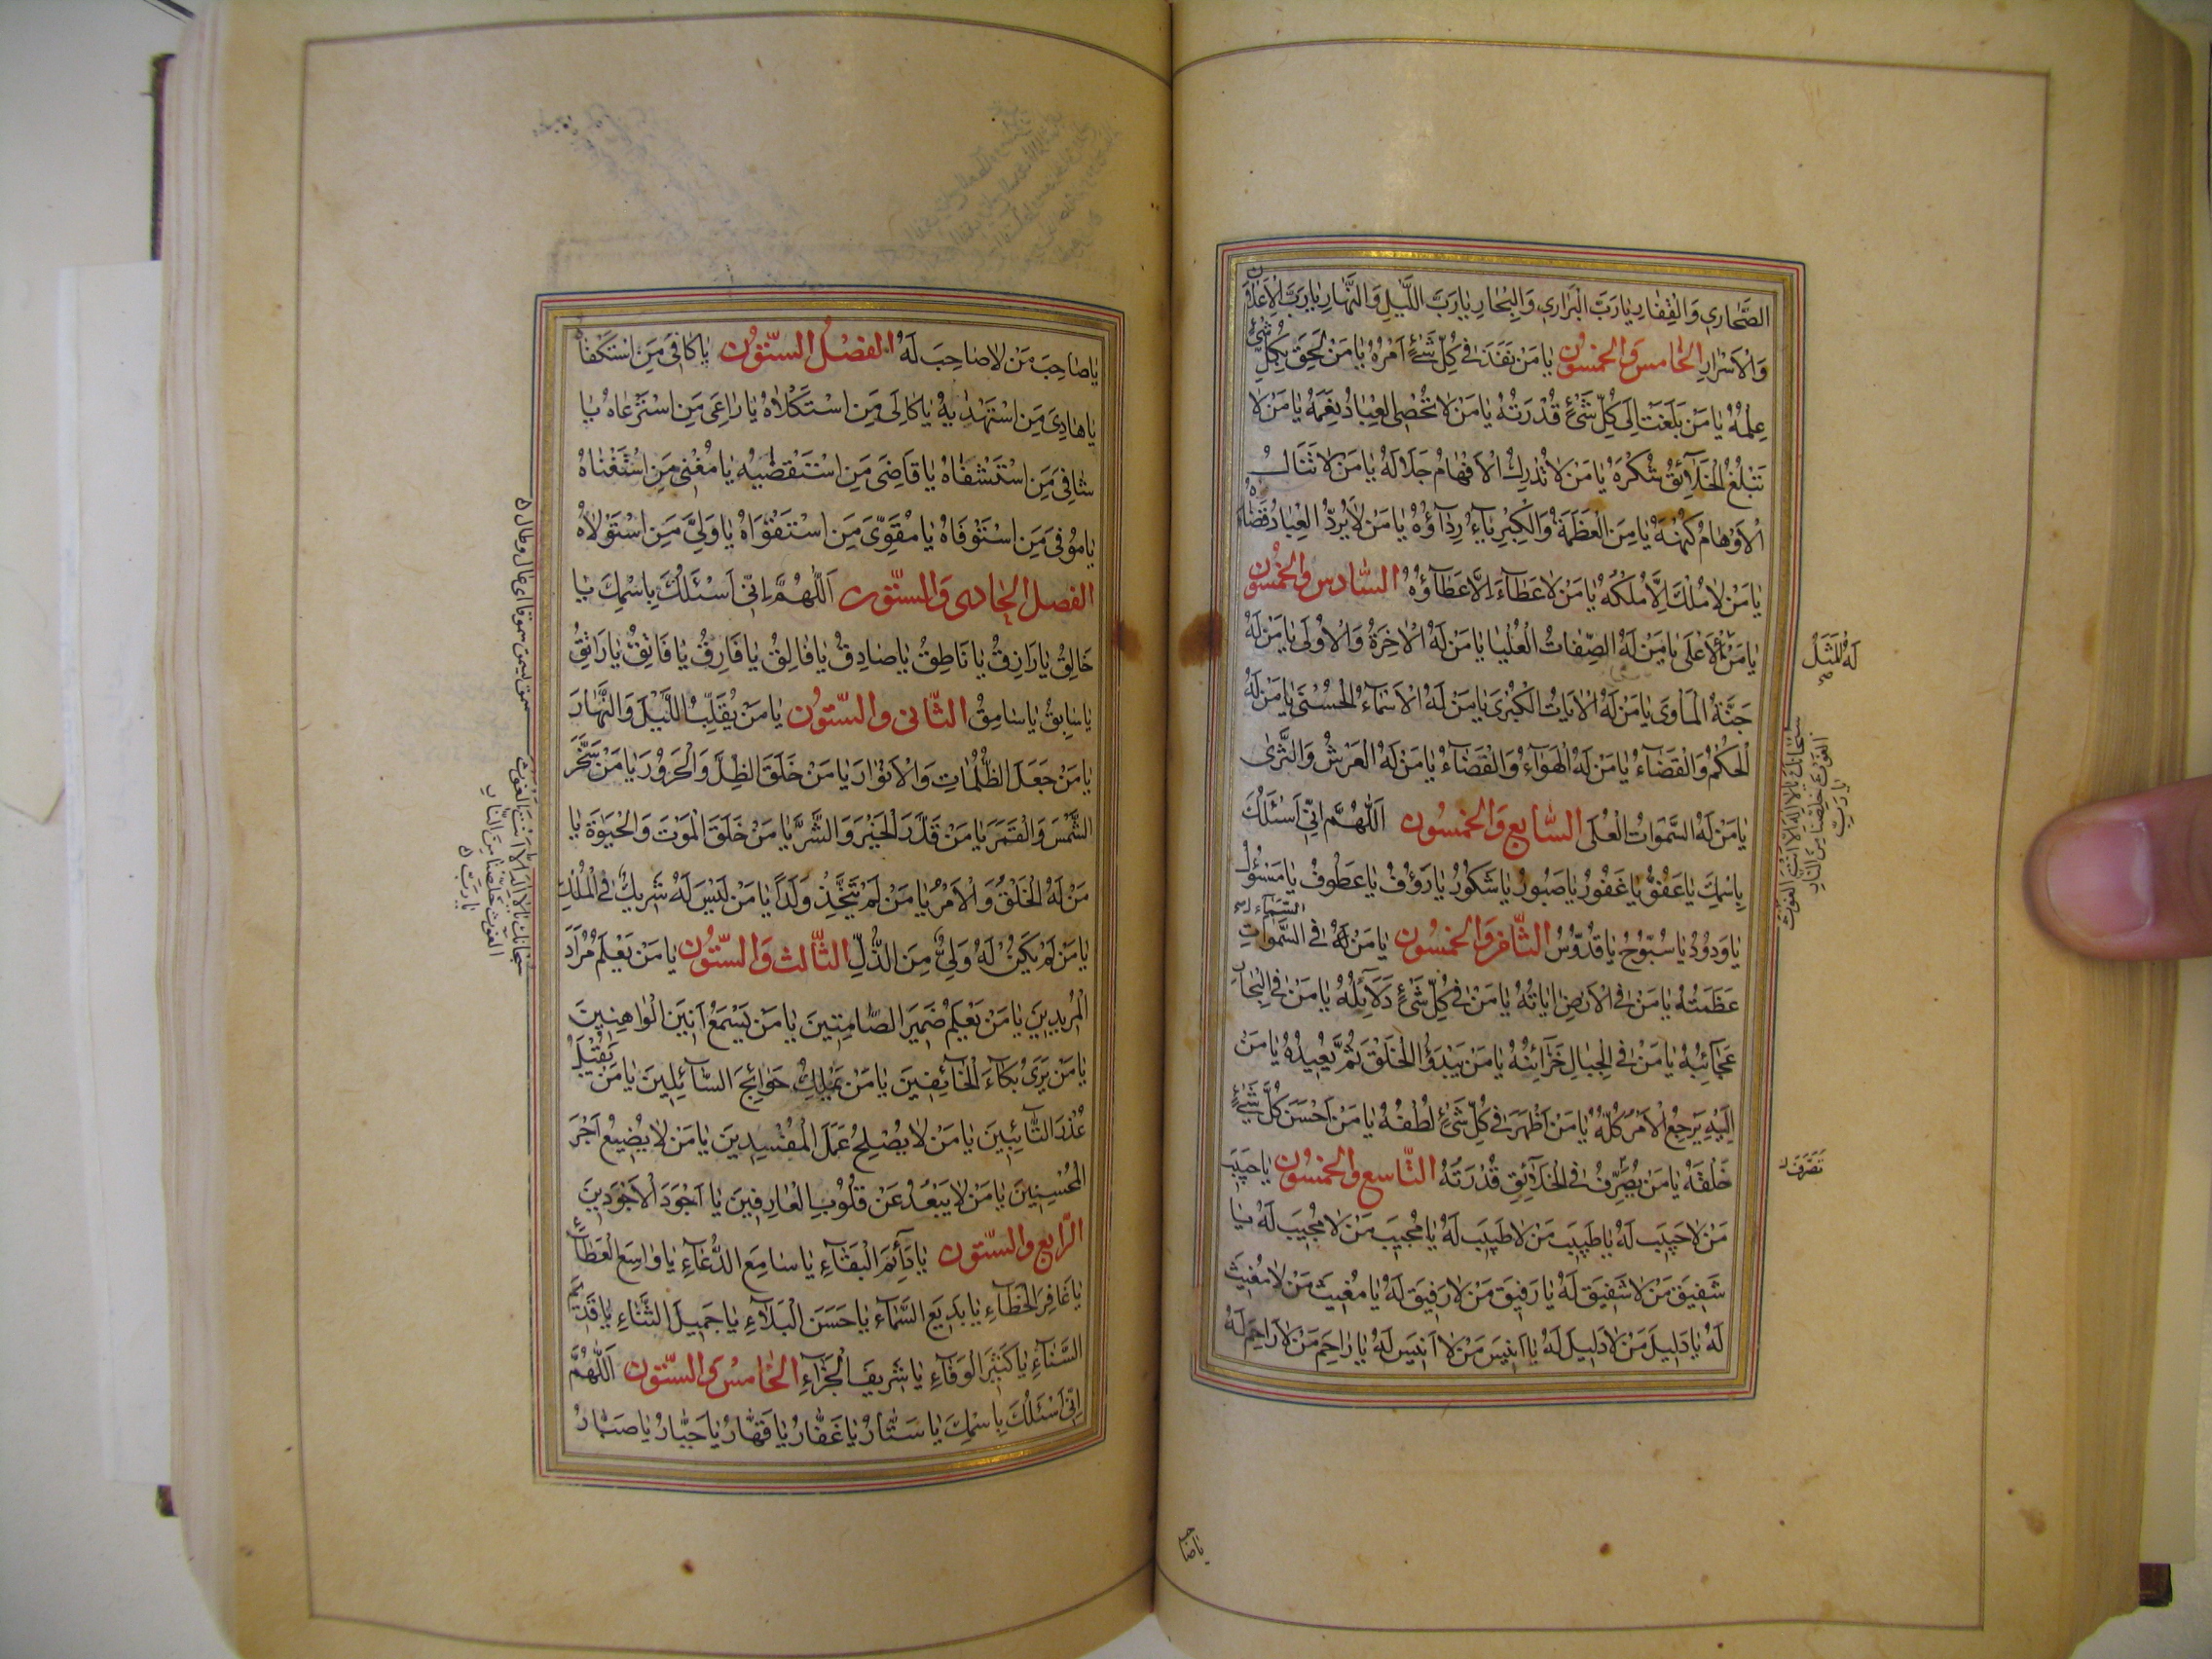 الصَّحَارِي وَالْقِفَارِ يَا رَبَّ الْبَرَارِي وَالْبِحَارِ يَا رَبَّ اللَّيْلِ وَالنَّهَارِ يَا رَبَّ الْاِعْلَانِ
وَالْاَسْرَارِ الخامس والخمسون يَا مَنْ نَفَذَ فِي كُلِّ شَيْءٍ اَمْرُهُ يَا مَنْ لَحِقَ بِكُلِّ شَيْءٍ
عِلْمُهُ يَا مَنْ بَلَغَتْ اِلَى كُلِّ شَيْءٍ قُدْرَتُهُ يَا مَنْ لَا تُحْصِي الْعِبَادُ نِعَمَهُ يَا مَنْ لَا
تَبْلُغُ الْخَلَآئِقُ شُكْرَهُ يَا مَنْ لَا تُدْرِكُ الْاَفْهَامُ جَلَالَهُ يَا مَنْ لَا تَنَالُ
الْاَوْهَامُ كُنْهَهُ يَا مَنِ الْعَظَمَةُ وَالْكِبْرِيَآءُ رِدَآؤُهُ يَا مَنْ لَا يَرُدُّ الْعِبَادُ قَضَاءَهُ
يَا مَنْ لَا مُلْكَ اِلَّا مُلْكُهُ يَا مَنْ لَا عَطَآءَ اِلَّا عَطَآؤُهُ السّادس والخمسون
يَا مَنْ الْاَعْلَى يَا مَنْ لَهُ الصِّفَاتُ الْعُلْيَا يَا مَنْ لَهُ الْاٰخِرَةُ وَالْاُولَى يَا مَنْ لَهُ
لَهُ الْمَثَلُ
جَنَّةُ الْمَاْوَى يَا مَنْ لَهُ الْاٰيَاتُ الْكُبْرَى يَا مَنْ لَهُ الْاَسْمَآءُ الْحُسْنَى يَا مَنْ لَهُ
الْحُكْمُ وَالْقَضَآءُ يَا مَنْ لَهُ الْهَوَآءُ وَالْفَضَآءُ يَا مَنْ لَهُ الْعَرْشُ وَالثَّرٰى
يَا مَنْ لَهُ السَّمٰوَاتُ الْعُلَى السّابع والخمسون اَللّٰهُمَّ اِنِّي اَسْئَلُكَ
سُبْحَانَكَ يَا لَا اِلٰهَ اِلَّا اَنْتَ الْغَوْثَ
الْغَوْثَ خَلِّصْنَا مِنَ النَّارِ
يَا رَبِّ
بِاسْمِكَ يَا عَفُوُّ يَا غَفُورُ يَا صَبُورُ يَا شَكُورُ يَا رَؤُفُ يَا عَطُوفُ يَا مَسْئُولُ
يَا وَدُودُ يَا سُبُّوحُ يَا قُدُّوسُ الثّامن والخمسون يَا مَنْ لَهُ فِي السَّمٰوَاتِ
السَّمَاء
عَظَمَتُهُ يَا مَنْ فِي الْاَرْضِ اٰيَاتُهُ يَا مَنْ فِي كُلِّ شَيْءٍ دَلَآئِلُهُ يَا مَنْ فِي الْبِحَارِ
عَجَآئِبُهُ يَا مَنْ فِي الْجِبَالِ خَزَآئِنُهُ يَا مَنْ يَبْدَؤُ الْخَلْقَ ثُمَّ يُعِيدُهُ يَا مَنْ
اِلَيْهِ يَرْجِعُ الْاَمْرُ كُلُّهُ يَا مَنْ اَظْهَرَ فِي كُلِّ شَيْءٍ لُطْفَهُ يَا مَنْ اَحْسَنَ كُلَّ شَيْءٍ
خَلْقَهُ يَا مَنْ يُصَرِّفُ فِي الْخَلَآئِقِ قُدْرَتَهُ التّاسع والخمسون يَا حَبِيبَ
تَصَرَّفَ
مَنْ لَا حَبِيبَ لَهُ يَا طَبِيبَ مَنْ لَا طَبِيبَ لَهُ يَا مُجِيبَ مَنْ لَا مُجِيبَ لَهُ يَا
شَفِيقَ مَنْ لَا شَفِيقَ لَهُ يَا رَفِيقَ مَنْ لَا رَفِيقَ لَهُ يَا مُغِيثَ مَنْ لَا مُغِيثَ
لَهُ يَا دَلِيلَ مَنْ لَا دَلِيلَ لَهُ يَا اَنِيسَ مَنْ لَا اَنِيسَ لَهُ يَا رَاحِمَ مَنْ لَا رَاحِمَ لَهُ
يا صاحب
يَا صَاحِبَ مَنْ لَا صَاحِبَ لَهُ الفصل السّتّون يَا كَافِيَ مَنِ اسْتَكْفَاهُ
يَا هَادِيَ مَنِ اسْتَهْدَيهُ يَا كَالِيَ مَنِ اسْتَكْلَاهُ يَا رَاعِيَ مَنِ اسْتَرْعَاهُ يَا
شَافِيَ مَنِ اسْتَشْفَاهُ يَا قَاضِيَ مَنِ اسْتَقْضَيهُ يَا مُغْنِيَ مَنِ اسْتَغْنَاهُ
يَا مُوفِيَ مَنِ اسْتَوْفَاهُ يَا مُقَوِّيَ مَنِ اسْتَقْوَاهُ يَا وَلِيَّ مَنِ اسْتَوْلَاهُ
الفصل الحادى والستّون اَللّٰهُمَّ اِنِّي اَسْئَلُكَ بِاسْمِكَ يَا
خَالِقُ يَا رَازِقُ يَا نَاطِقُ يَا صَادِقُ يَا فَالِقُ يَا فَارِقُ يَا فَاتِقُ يَا رَاتِقُ
يَا سَابِقُ يَا سَامِقُ الثّانى والستّون يَا مَنْ يُقَلِّبُ اللَّيْلَ وَالنَّهَارَ
يَا مَنْ جَعَلَ الظُّلُمَاتِ وَالْاَنْوَارَ يَا مَنْ خَلَقَ الظِّلَّ وَالْحَرُورَ يَا مَنْ سَخَّرَ
الشَّمْسَ وَالْقَمَرَ يَا مَنْ قَدَّرَ الْخَيْرَ وَالشَّرَّ يَا مَنْ خَلَقَ الْمَوْتَ وَالْحَيٰوةَ يَا
سُبْحَانَكَ يَا لَا اِلٰهَ اِلَّا اَنْتَ الْغَوْثَ
الْغَوْثَ خَلِّصْنَا مِنَ النَّارِ
يَا رَبِّ
مَنْ لَهُ الْخَلْقُ وَالْاَمْرُ يَا مَنْ لَمْ يَتَّخِذْ وَلَدًا يَا مَنْ لَيْسَ لَهُ شَرِيكٌ فِي الْمُلْكِ
يَا مَنْ لَمْ يَكُنْ لَهُ وَلِيٌّ مِنَ الذُّلِّ الثّالث والستّون يَا مَنْ يَعْلَمُ مُرَادَ
الْمُرِيدِينَ يَا مَنْ يَعْلَمُ ضَمِيرَ الصَّامِتِينَ يَا مَنْ يَسْمَعُ اَنِينَ الْوَاهِنِينَ
يَا مَنْ يَرَى بُكَآءَ الْخَآئِفِينَ يَا مَنْ يَمْلِكُ حَوَائِجَ السَّآئِلِينَ يَا مَنْ يَقْبَلُ
عُذْرَ التَّآئِبِينَ يَا مَنْ لَا يُصْلِحُ عَمَلَ الْمُفْسِدِينَ يَا مَنْ لَا يُضِيعُ اَجْرَ
الْمُحْسِنِينَ يَا مَنْ لَا يَبْعُدُ عَنْ قُلُوبِ الْعَارِفِينَ يَا اَجْوَدَ الْاَجْوَدِينَ
الرّابع والستّون يَا دَآئِمَ الْبَقَآءِ يَا سَامِعَ الدُّعَآءِ يَا وَاسِعَ الْعَطَآءِ
يَا غَافِرَ الْخَطَآءِ يَا بَدِيعَ السَّمَآءِ يَا حَسَنَ الْبَلَآءِ يَا جَمِيلَ الثَّنَاءِ يَا قَدِيمَ
السَّنَآءِ يَا كَثِيرَ الْوَفَآءِ يَا شَرِيفَ الْجَزَآءِ الخامس والستّون اَللّٰهُمَّ
اِنِّي اَسْئَلُكَ بِاسْمِكَ يَا سَتَّارُ يَا غَفَّارُ يَا قَهَّارُ يَا جَبَّارُ يَا صَبَّارُ